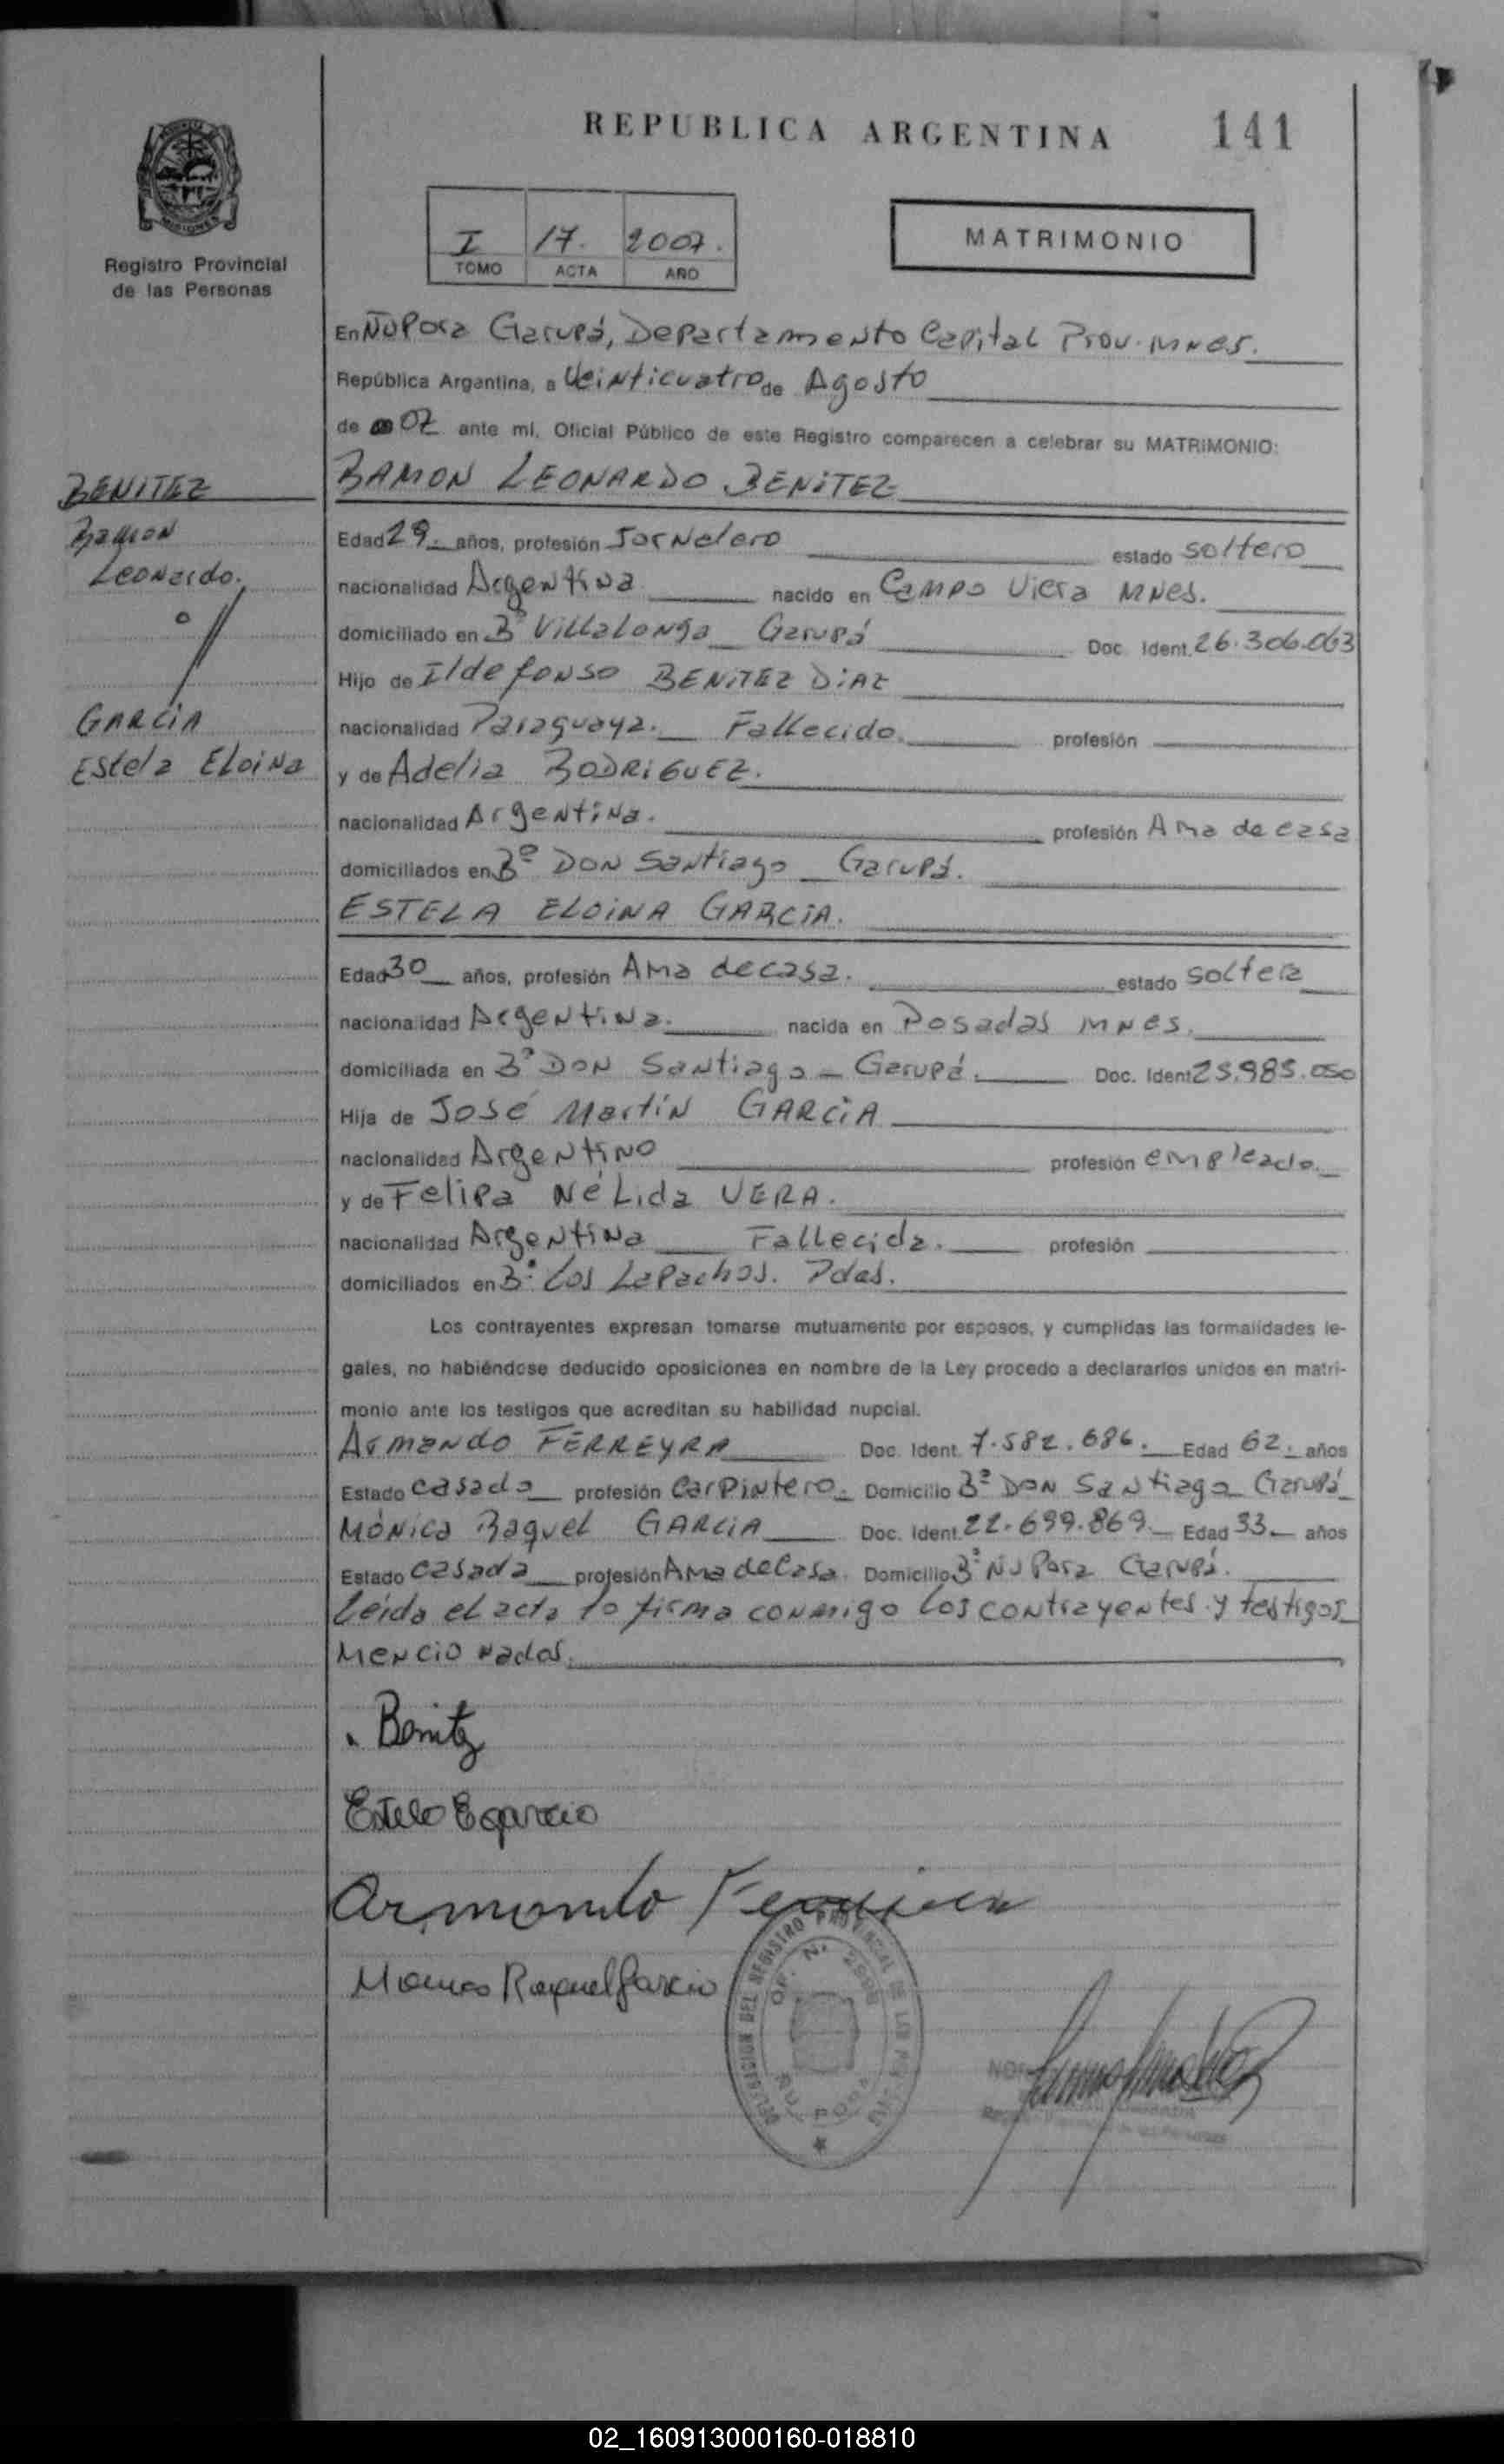 REPUBLICA ARGENTINA 141
MISIONES
Registro Provincial
de las Personas
I 17. 2007.
TOMO ACTA AÑO
MATRIMONIO
En Ñu Pora Garupá, Departamento Capital Prov. Mnes.
República Argentina, a Veinticuatro de Agosto
de 07 ante mí, Oficial Público de este Registro comparecen a celebrar su MATRIMONIO:
BENITEZ
Ramon
Leonardo.
GARCIA
Estela Eloina
RAMON LEONARDO BENITEZ
Edad 29 años, profesión Jornalero estado soltero
nacionalidad Argentina nacido en Campo Viera Mnes.
domiciliado en Bº Villalonga Garupá Doc. Ident. 26.306.063
Hijo de Ildefonso BENITEZ DIAZ
nacionalidad Paraguaya. Fallecido. profesión
y de Adelia RODRIGUEZ.
nacionalidad Argentina. profesión Ama de casa
domiciliados en Bº DON Santiago Garupá.
ESTELA ELOINA GARCIA.
Edad 30 años, profesión Ama de casa. estado soltera
nacionalidad Argentina. nacida en Posadas Mnes.
domiciliada en Bº DON Santiago - Garupá. Doc. Ident 25.985.050
Hija de José Martín GARCIA
nacionalidad Argentino profesión empleado.
y de Felipa Nélida VERA.
nacionalidad Argentina Fallecida. profesión
domiciliados en Bº Los Lapachos. Pdas.
Los contrayentes expresan tomarse mutuamente por esposos, y cumplidas las formalidades le-
gales, no habiéndose deducido oposiciones en nombre de la Ley procedo a declararlos unidos en matri-
monio ante los testigos que acreditan su habilidad nupcial.
Armando FERREYRA Doc. Ident. 7.582.686. Edad 62. años
Estado casado profesión Carpintero. Domicilio Bº DON Santiago Garupá
Mónica Raquel GARCIA Doc. Ident. 22.699.869. Edad 33 años
Estado casada profesión Ama de Casa. Domicilio Bº Ñu Pora Garupá.
Leída el acta lo firma conmigo los contrayentes y testigos
Mencionados.
Benitz
Estela E Garcia
Armando Ferreira
Monica Raquel Garcia
DELEGACION DEL REGISTRO PROVINCIAL DE LAS
ÑU PORA
02_160913000160-018810